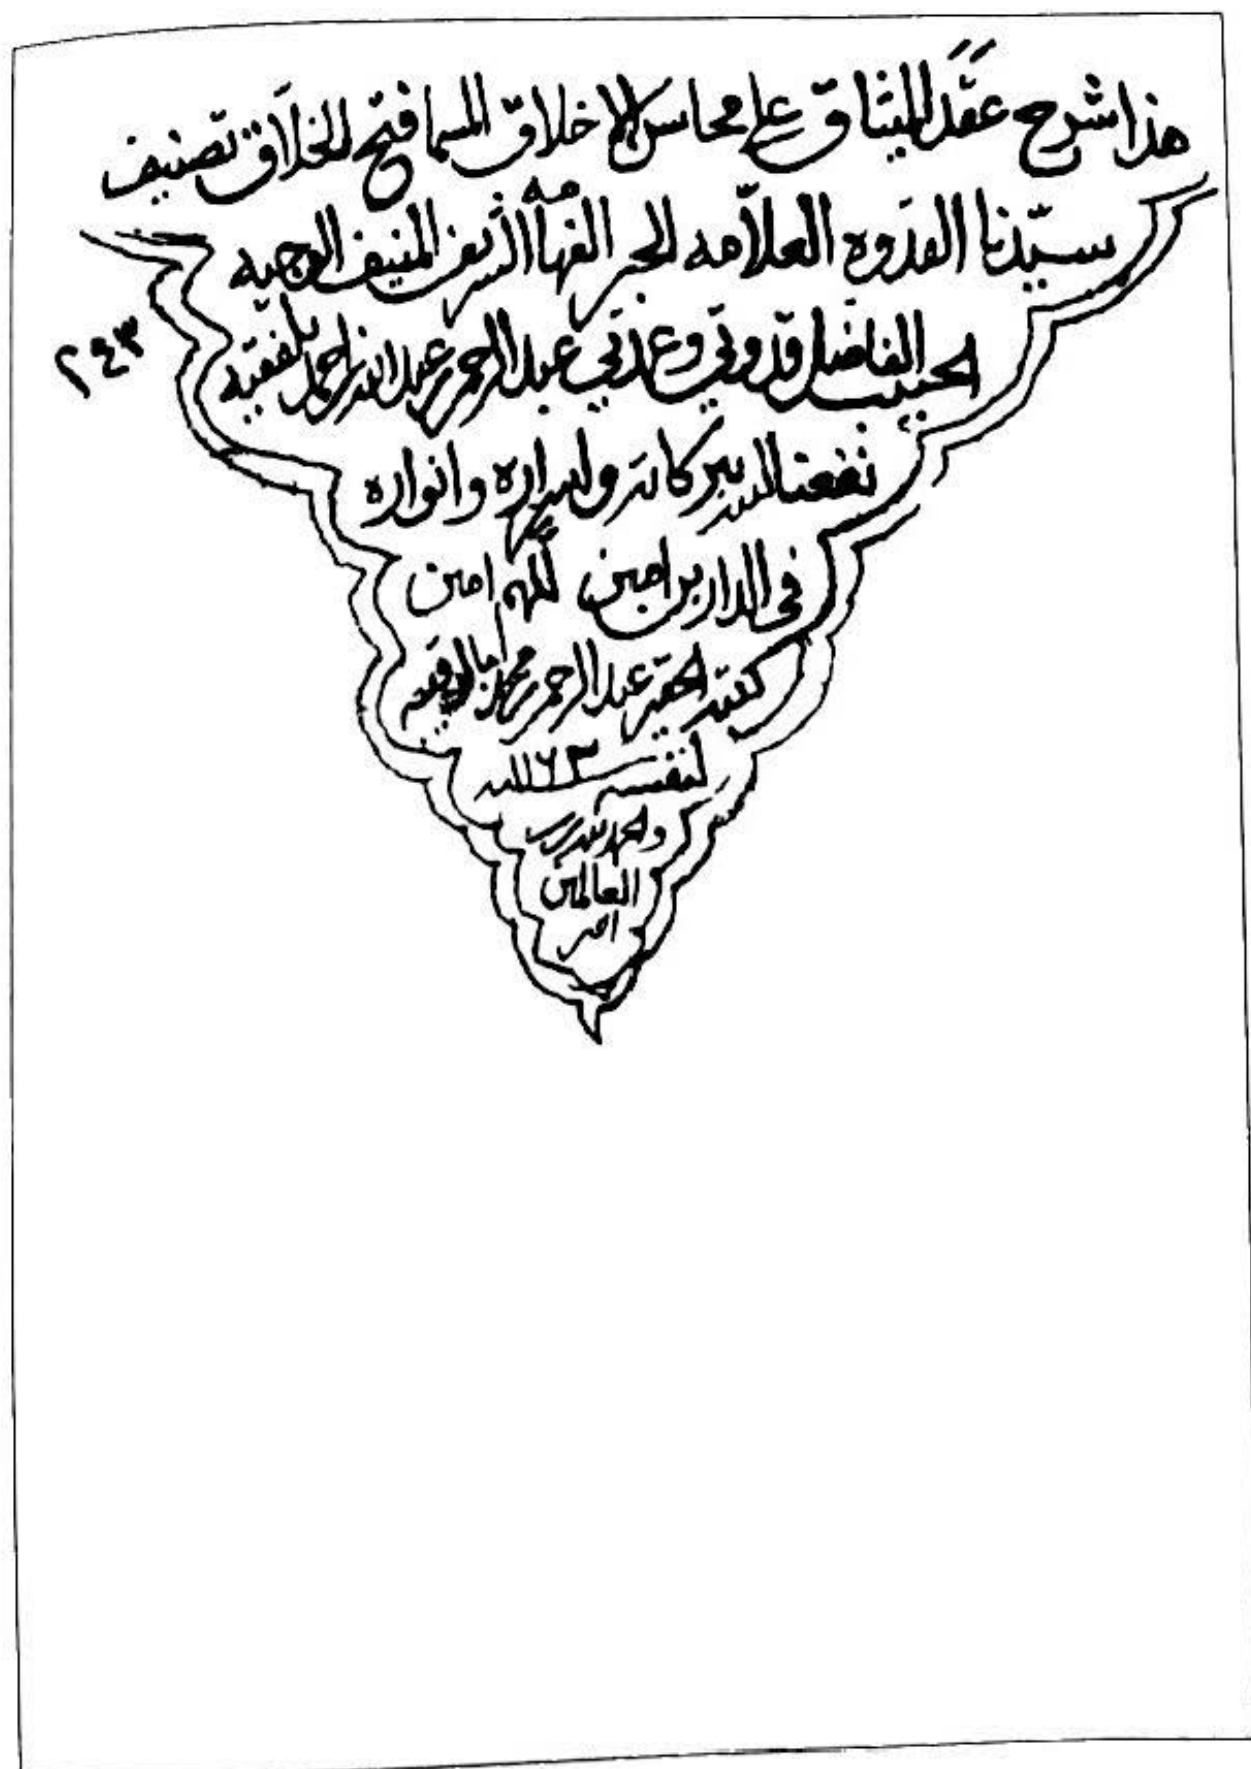 هذا شرح عقد الميثاق على محاسن الاخلاق المسما فتح الخلاق تصنيف
سيّدنا القدوه العلاّمه الحبر الفهامه الشريف المنيف الوجيه
الحبيب الفاضل قدوتي وعمدتي عبد الرحمن بن عبد الله بن احمد بلفقيه
٢٤٣
نفعنا الله ببركاته واسراره وانواره
في الدارين امين اللهم امين
كتبه الحقير عبد الرحمن محمد
لنفسه سنه ١١٦٣
والحمد لله رب
العالمين
امين